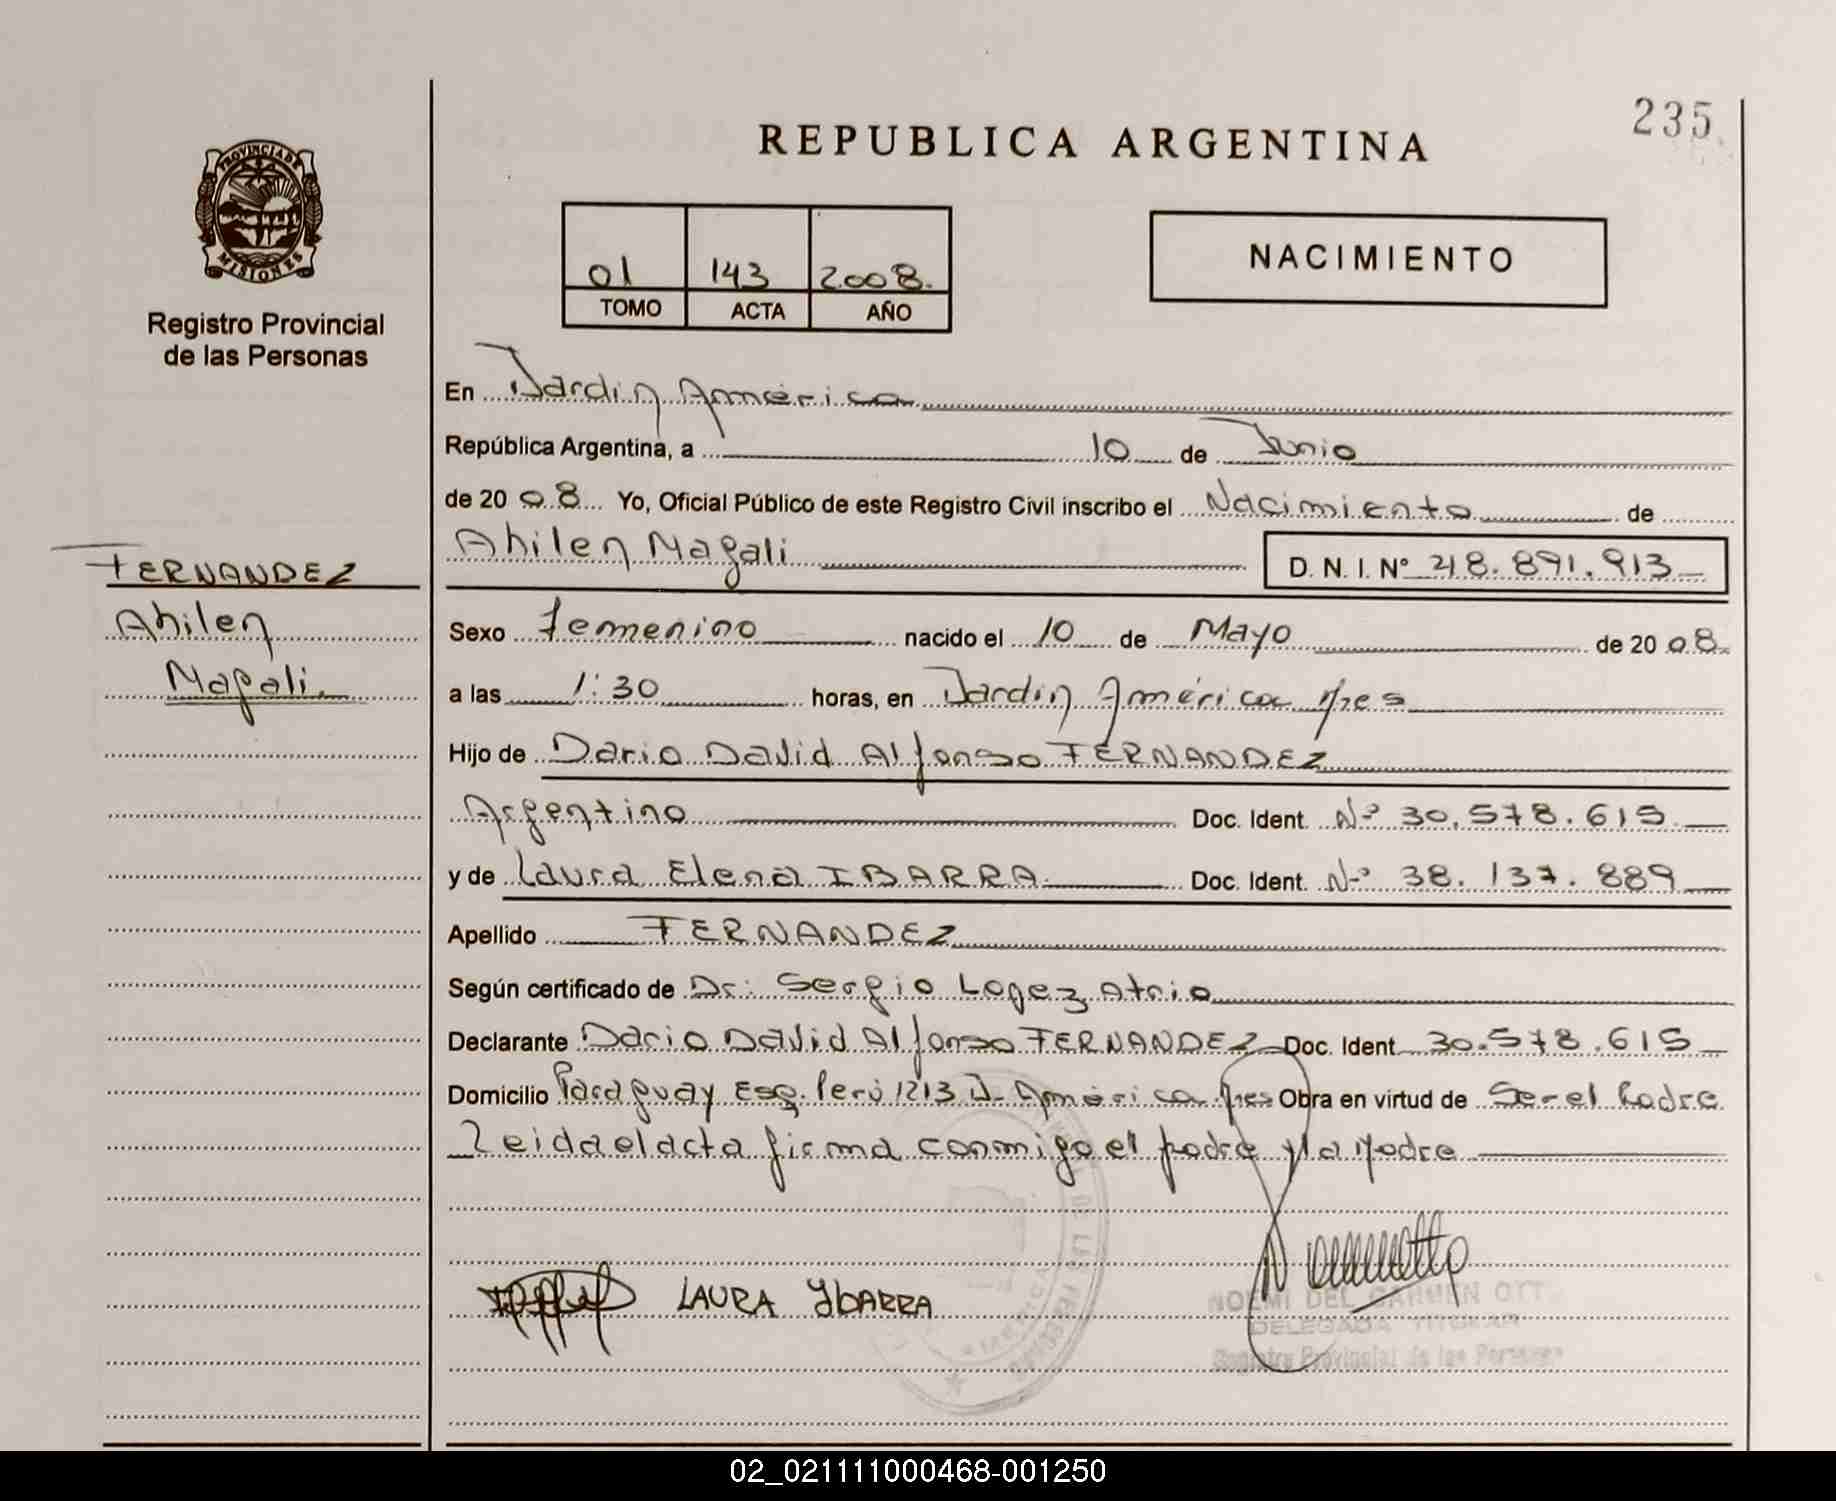 235
REPUBLICA ARGENTINA
PROVINCIA DE
MISIONES
Registro Provincial
de las Personas
01 143 2008.
TOMO ACTA AÑO
NACIMIENTO
En Jardin América
República Argentina, a 10 de Junio
de 20 08 Yo, Oficial Público de este Registro Civil inscribo el Nacimiento de
Ahilen Magali D. N. I. Nº 48.891.913
FERNANDEZ
Ahilen
Magali.
Sexo Femenino nacido el 10 de Mayo de 20 08.
a las 1:30 horas, en Jardin América Mnes
Hijo de Dario David Alfonso FERNANDEZ
Argentino Doc. Ident. Nº 30.578.615
y de Laura Elena IBARRA Doc. Ident. Nº 38.137.889
Apellido FERNANDEZ
Según certificado de Dr: Sergio Lopez Atrio
Declarante Dario David Alfonso FERNANDEZ Doc. Ident. 30.578.615
Domicilio Paraguay Esq. Perú 1213 J. América Mnes Obra en virtud de Ser el Padre
Leida el acta firma conmigo el padre y la Madre
LAURA YbARRA
NOEMI DEL CARMEN OTTO
DELEGADA TITULAR
Registro Provincial de las Personas
02_021111000468-001250